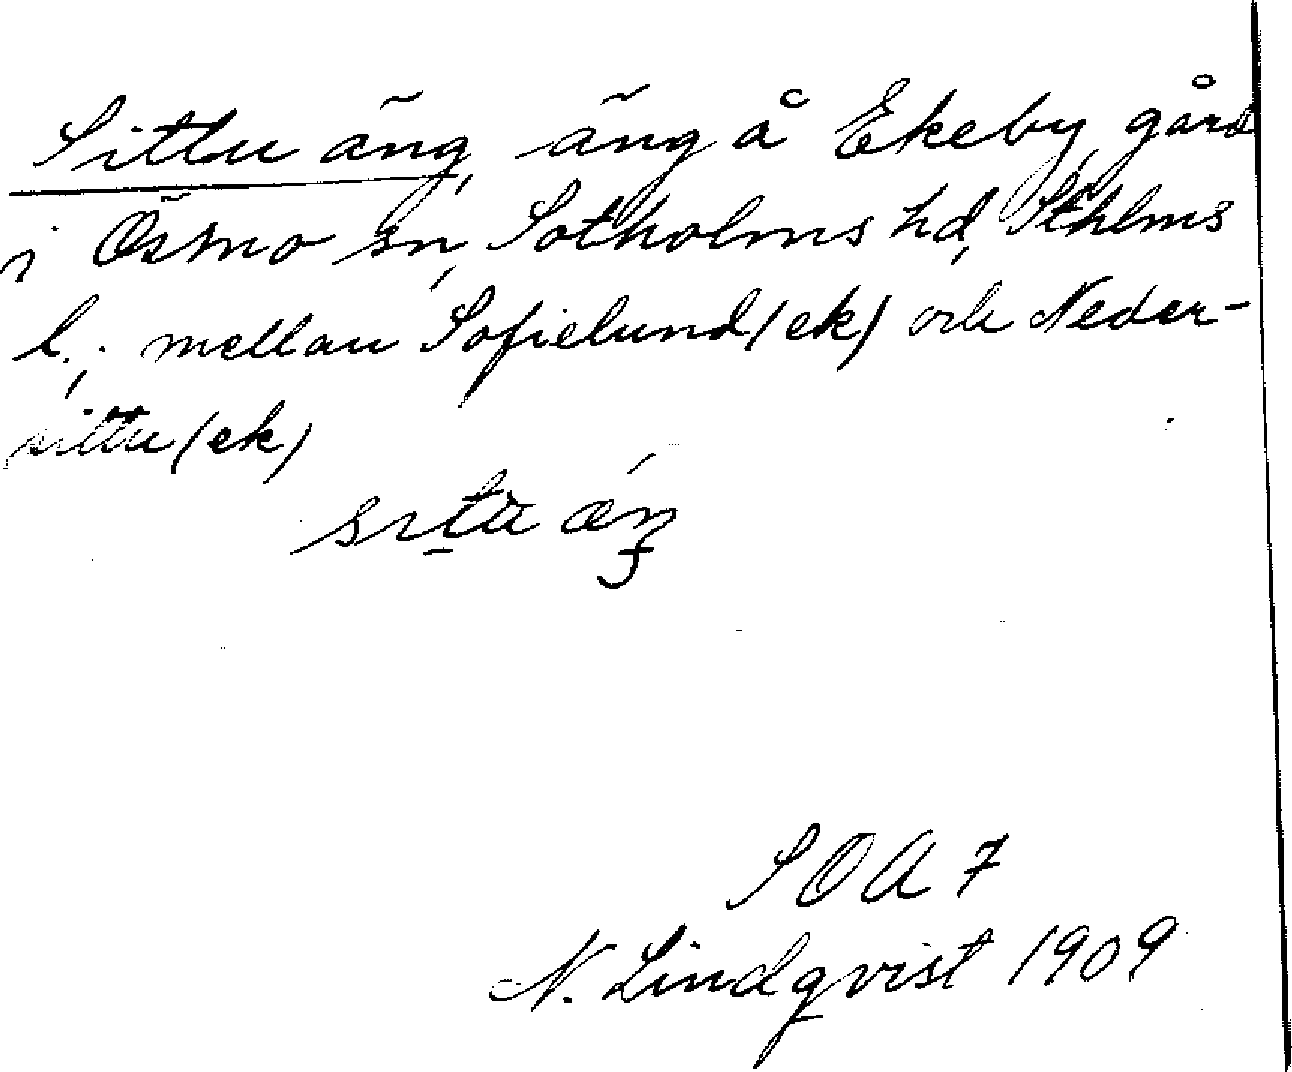 Sittu äng, äng å Ekeby gård
i Ösmo sn, Sotholms hd, Sthlms
l.; mellan Sofielund (ek) och Neder-
sittu (ek)
SOA 7
N. Lindqvist 1909